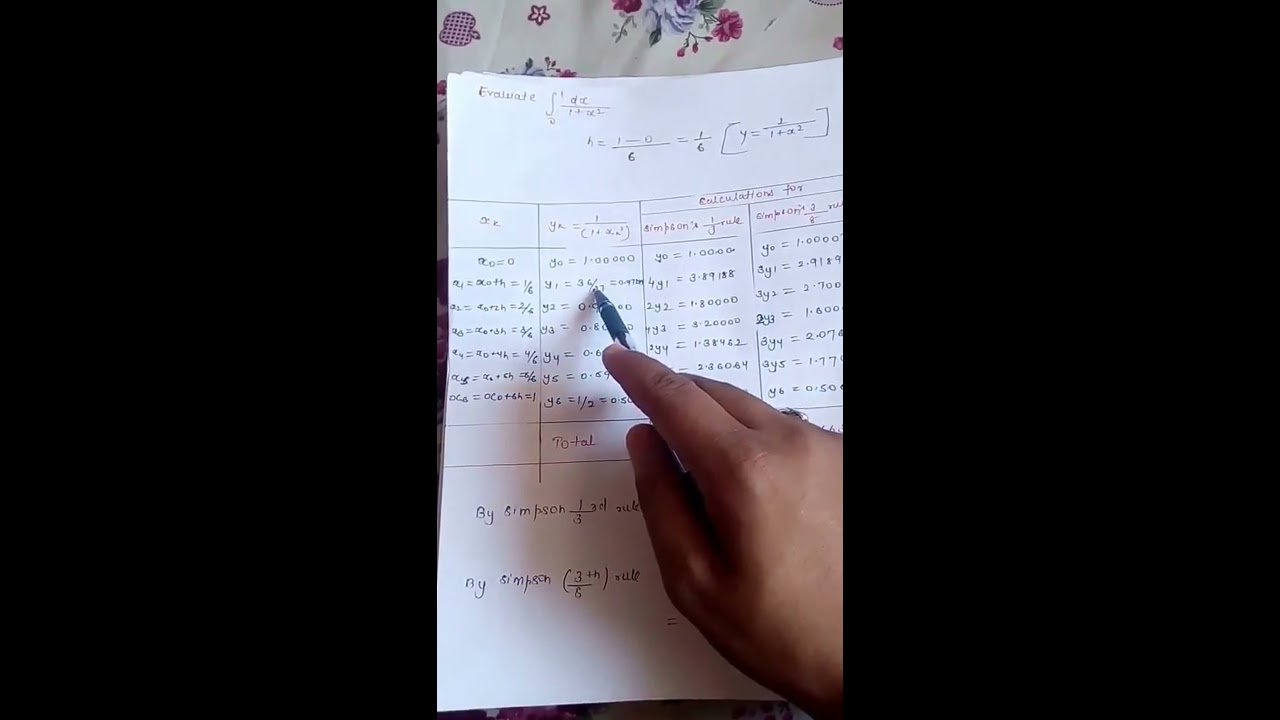 Evaluate ∫₀¹ dx/1+x²
h = 1-0/6 = 1/6 [y = 1/1+x²]
Calculations for
xk yk = 1/(1+xk²) Simpson's 1/3 rule Simpson's 3/8
x0=0 y0 = 1.00000 y0 = 1.00000 y0 = 1.0000
x1 = x0+h = 1/6 y1 = 36/37 = 4y1 = 3.89188 3y1 = 2.9189
x2 = x0+2h = 2/6 y2 = 2y2 = 1.80000 3y2 = 2.700
x3 = x0+3h = 3/6 y3 = 4y3 = 3.20000 2y3 = 1.600
x4 = x0+4h = 4/6 y4 = 2y4 = 1.38462 3y4 = 2.076
x5 = x0+5h = 5/6 y5 = = 2.36064 3y5 = 1.770
x6 = x0+6h = 1 y6 = 1/2 = y6 =
Total
By Simpson 1/3 rd rule
By Simpson (3/8 th) rule
=